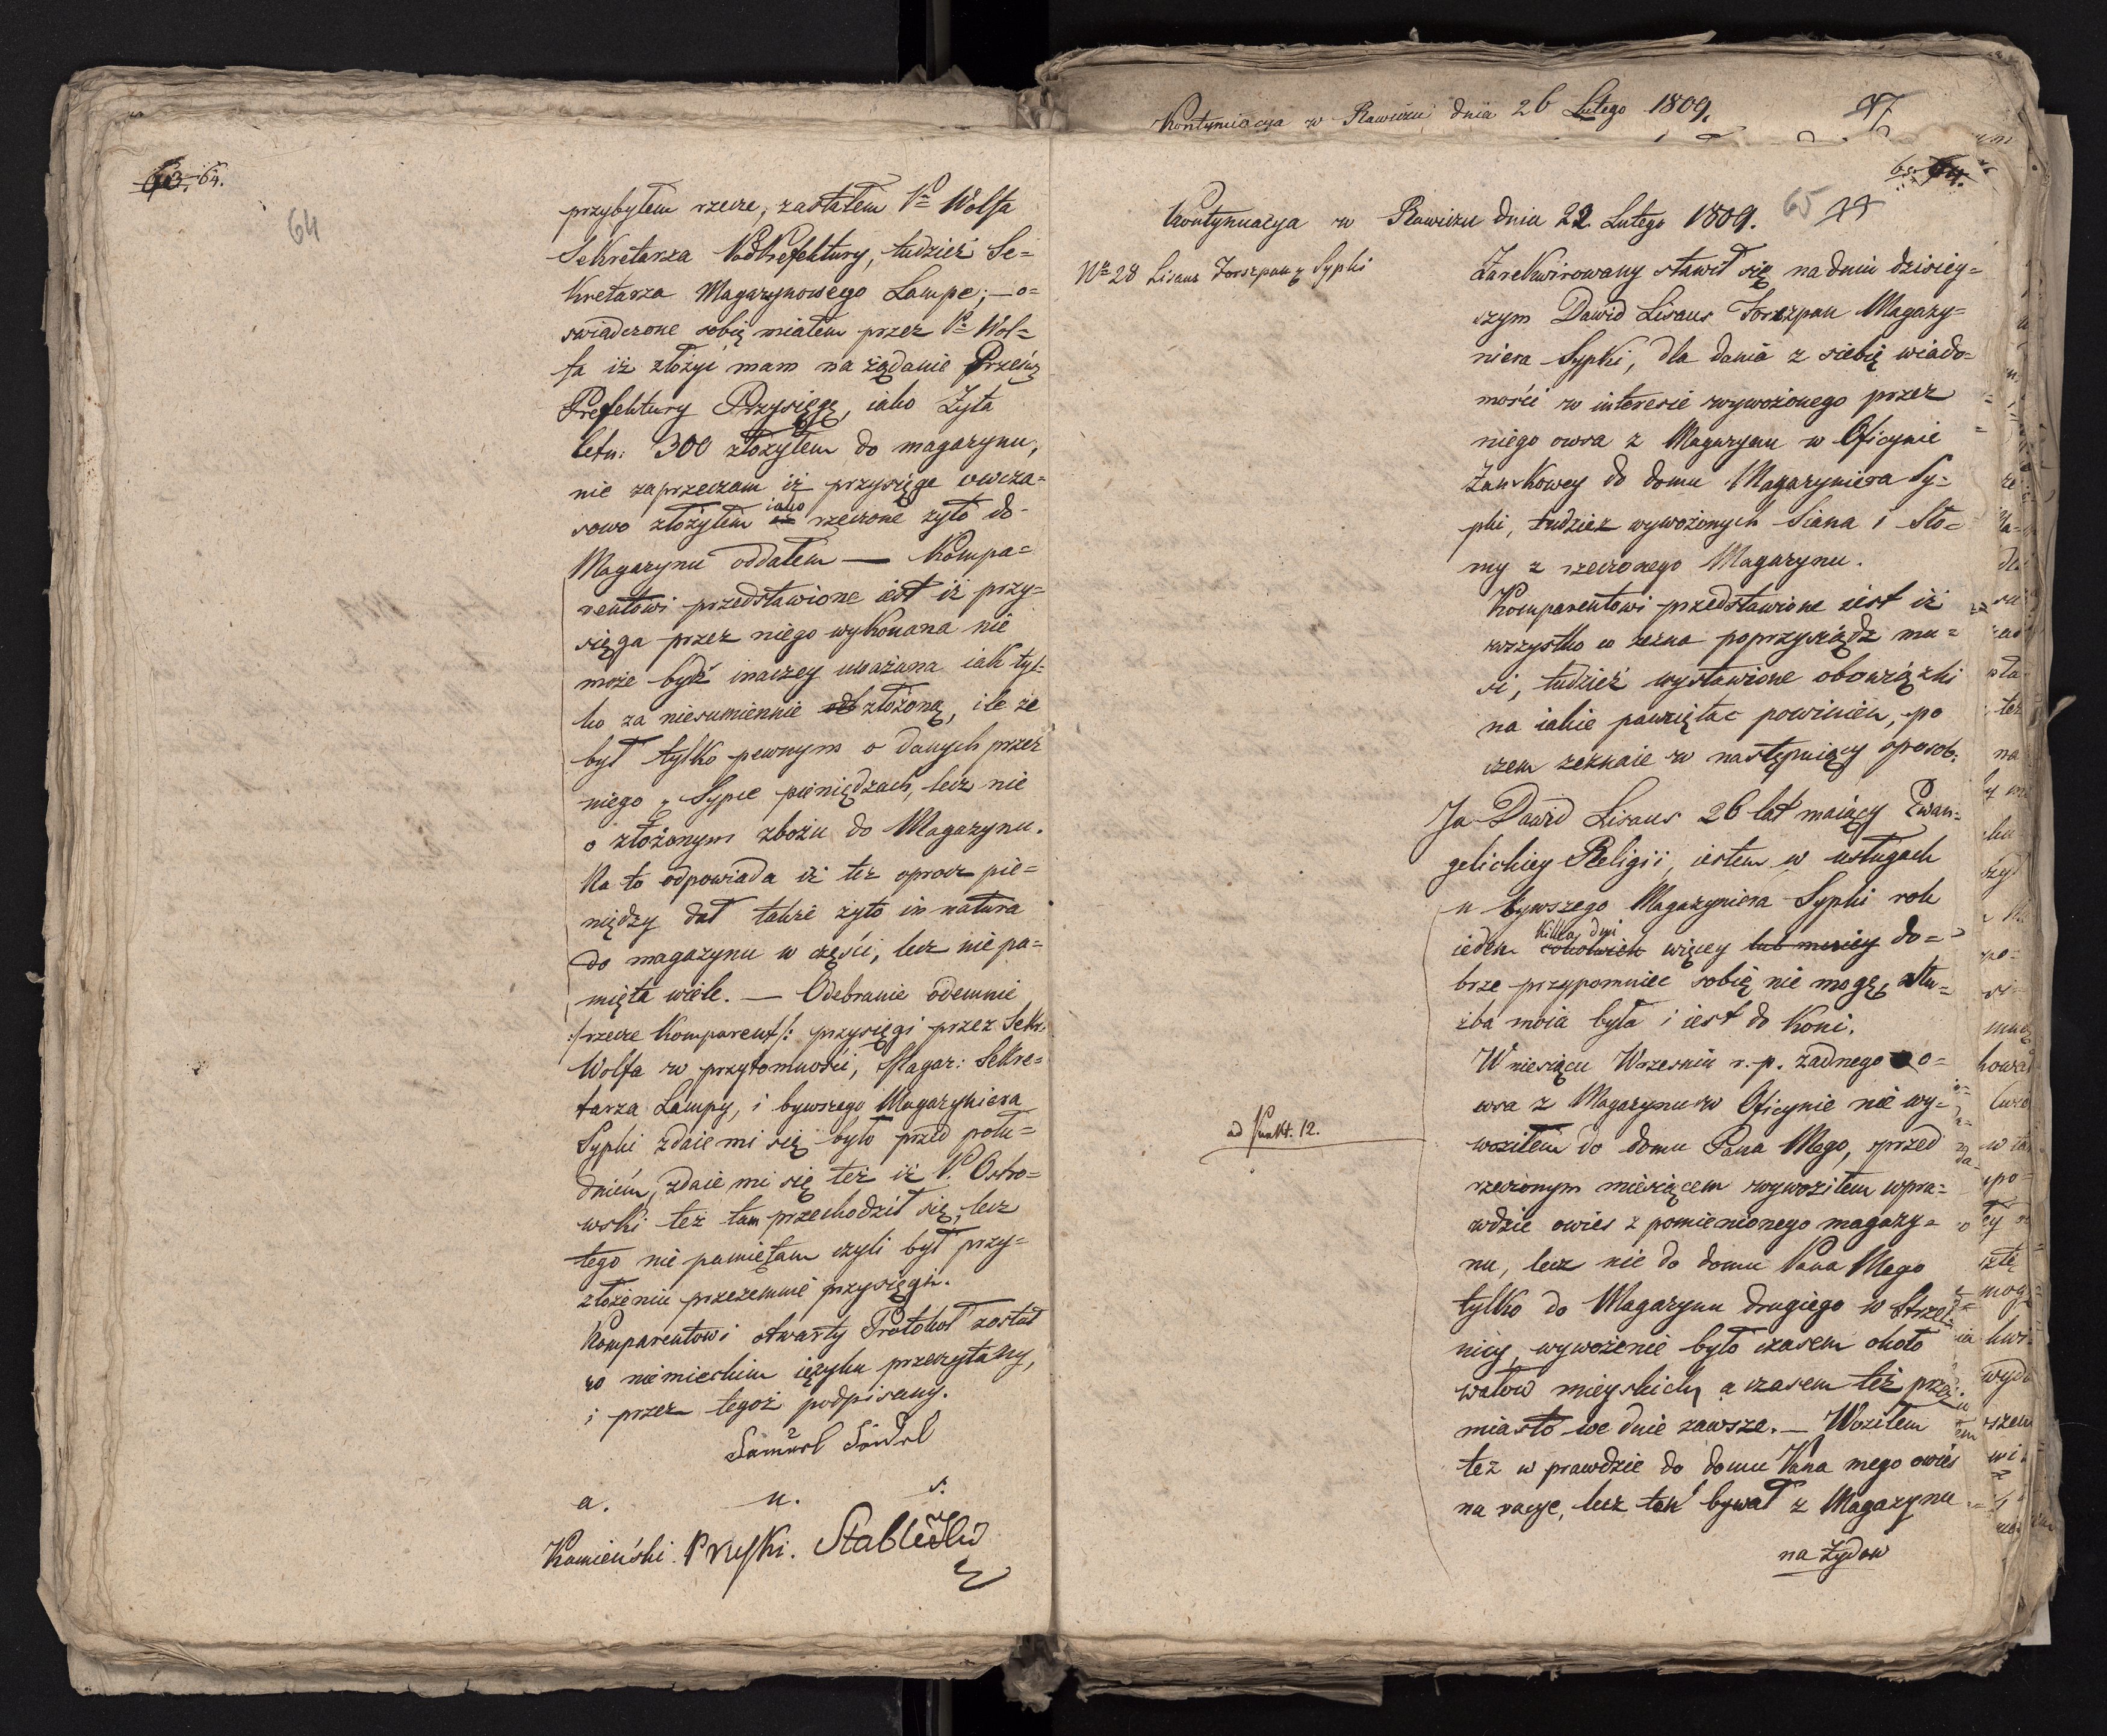 63. 64.
64
przybyłem rzecze, zastałem Pa Wolfa
Sekretarza PodPrefektury, tudzież Se=
kretarza Magazynowego Lampe; — o=
swiadczone sobię miałem przez Pa Wol=
fa iż złożyć mam na żądanie Prześw:
Prefektury Przysięgę, iako Żyta
Cetn: 300 złożyłem do magazynu,
nie zaprzeczam iż przysięgę owcza=
sowo złożyłem iako rzeczone zyto do-
Magazynu oddałem — Kompa=
rentowi przedstawione iest iż przy=
sięga przez niego wykonana nie
może bydź inaczey uważana iak tyl=
ko za niesumiennie złożoną, ile że
był tylko pewnym o danych przez
niego Sypce pieniędzach, lecz nie
o złożonym zbożu do Magazynu.
Na to odpowiada iż też oprocz pie=
niędzy dał także żyto in natura
do magazynu w części, lecz nie pa=
mięta wiele. — Odebranie odemnie
:/rzecze Komparent/: przysięgi przez Sekr:
Wolfa w przytomności, Magaz: Sekre=
tarza Lampy, i bywszego Magazyniera
Sypki zdaie mi się było przed połu=
dniem, zdaie mi się też iż P. Ostro=
wski też tam przechodził się, lecz
tego nie pamiętam czyli był przy=
złożeniu przezemnie przysięgi.
Komparentowi otwarty Protokoł został
w niemieckim ięzyku przeczytany,
i przez tegoż podpisany.
Samuel Seidel
a. u. s.
Kamieński. Pruski. Stablewski
Kontynuacya w Rawiczu dnia 26 Lutego 1809.
65. 64.
Kontynuacya w Rawiczu dnia 22. Lutego 1809. 65
No 28 Lisaus Forszpan z Sypki
Zarekwirowany stawił się na dniu dzisiey=
szym Dawid Lisaus Forszpan Magazy=
niera Sypki, dla dania z siebię wiado=
mości w interesie wywożonego przez
niego owsa z Magazynu w Oficynie
Zamkowey do domu Magazyniera Sy=
pki, tudzież wywożonych Siana i Sło=
my z rzeczonego Magazynu.
Komparentowi przedstawione iest iż
wszystko co zezna poprzysiądz mu=
si, tudzież wystawione obowiązki
na iakie pamiętac powinien, po
czem zeznaie w następuiący sposob:
Ja Dawid Lisaus 26 lat maiący Ewan=
gelickiey Religii, iestem w usługach
u bywszego Magazyniera Sypki rok
ieden kilka dni cokolwiek więcey lub mniey do=
brze przypomniec sobię nie mogę, słu=
żba moia była i iest do Koni.
W miesiącu Wrześniu r. p. żadnego o=
wsa z Magazynu w Oficynie nie wy=
ad Punkt. 12.
woziłem do domu Pana Mego, przed
rzeczonym miesiącem wywoziłem wpra=
wdzie owies z pomienionego magazy=
nu, lecz nie do domu Pana Mego
tylko do Magazynu drugiego w Strzel=
nicy, wywożenie było czasem około
wałow mieyskich, a czasem też przez
miasto we dnie zawsze. — Woziłem
też w prawdzie do domu Pana mego owies
na racye, lecz ten bywał z Magazynu
na Żydow